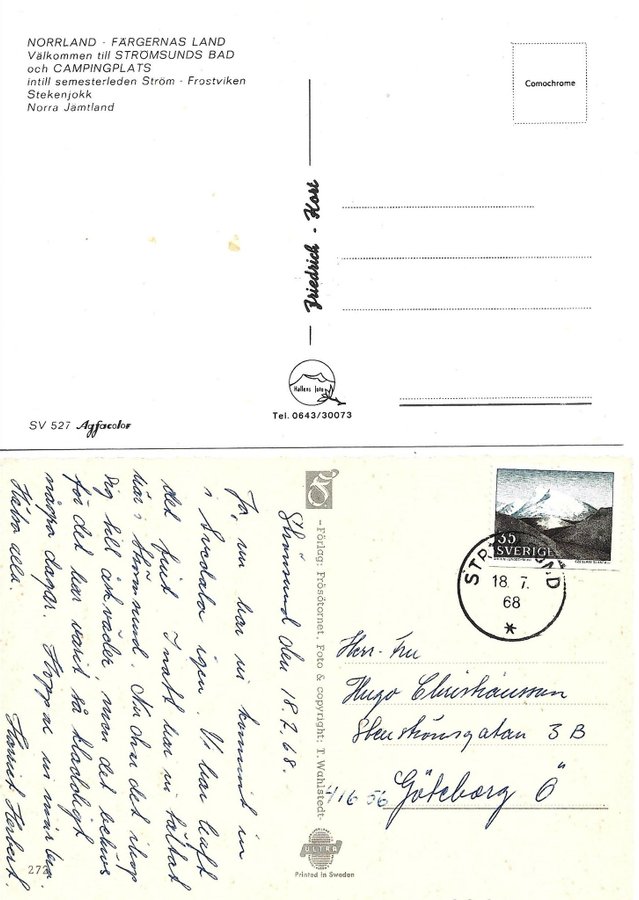 NORRLAND - FÄRGERNAS LAND
Välkommen till STRÖMSUNDS BAD
och CAMPINGPLATS
intill semesterleden Ström - Frostviken
Stekenjokk
Norra Jämtland
Comochrome
Friedrich - Karl
Hallens foto
Tel. 0643/30073
SV 527 Agfacolor
Strömsund den 18.7.68.
Ja, nu har vi kommit in
i Svedala igen. Vi har haft
det fint. I natt har vi tältat
här i Strömsund. Nu drar det ihop
sig till åskväder, men det behövs
för det har varit så kladdigt
några dagar. Hoppas ni mår bra.
Hälsn alla.
Herbert.
- Förlag: Frösötornet. Foto & copyright: T. Wahlstedt-
35
SVERIGE
STRÖMSUND
18. 7.
68
Herr- Fru
Hugo Christiansson
Stenskönsgatan 3 B
416 56 Göteborg Ö
ULTRA
Printed in Sweden
272